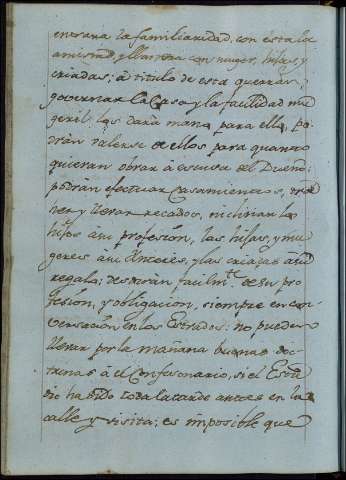 entrara la familiaridad, con esta la
amistad, y llaneza con muger, hijas, y
criadas; á titulo de esta querran
governar la Casa, y la facilidad mu
geril las dara mano para ello, po
drán valerse de ellos para quanto
quieran obrar á escusa del Dueño;
podrán efectuar Casamientos, tra
her, y llevar recados, inclinar los
hijos á su profesion, las hijas, y mu
geres á su Interes, y las criadas a su
regalo; desdirán facilmte. de su pro
fesion, y obligacion, siempre en con
versacion en los Estrados: no pueden
llevar por la mañana buenas doc
trinas á el Confesonario, si el Estu
dio ha sido toda la tarde antes en la
calle y visita; es imposible que